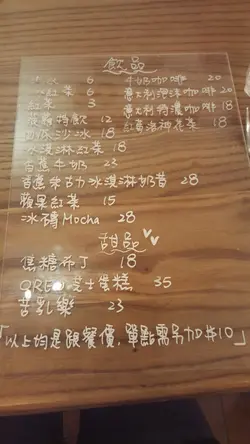 飲品
6
紅茶 6
紅茶 3
特飲 12
沙冰 18
冰淇淋紅茶 18
香蕉牛奶 23
香蕉朱古力冰淇淋奶昔 28
蘋果紅茶 15
冰磚Mocha 28
牛奶咖啡 20
意大利泡沫咖啡 20
意大利特濃咖啡 18
洛神花茶 18
甜品
焦糖布丁 18
OREO芝士蛋糕 35
苦乳樂 23
「以上均是跟餐價,單點需另加#10」